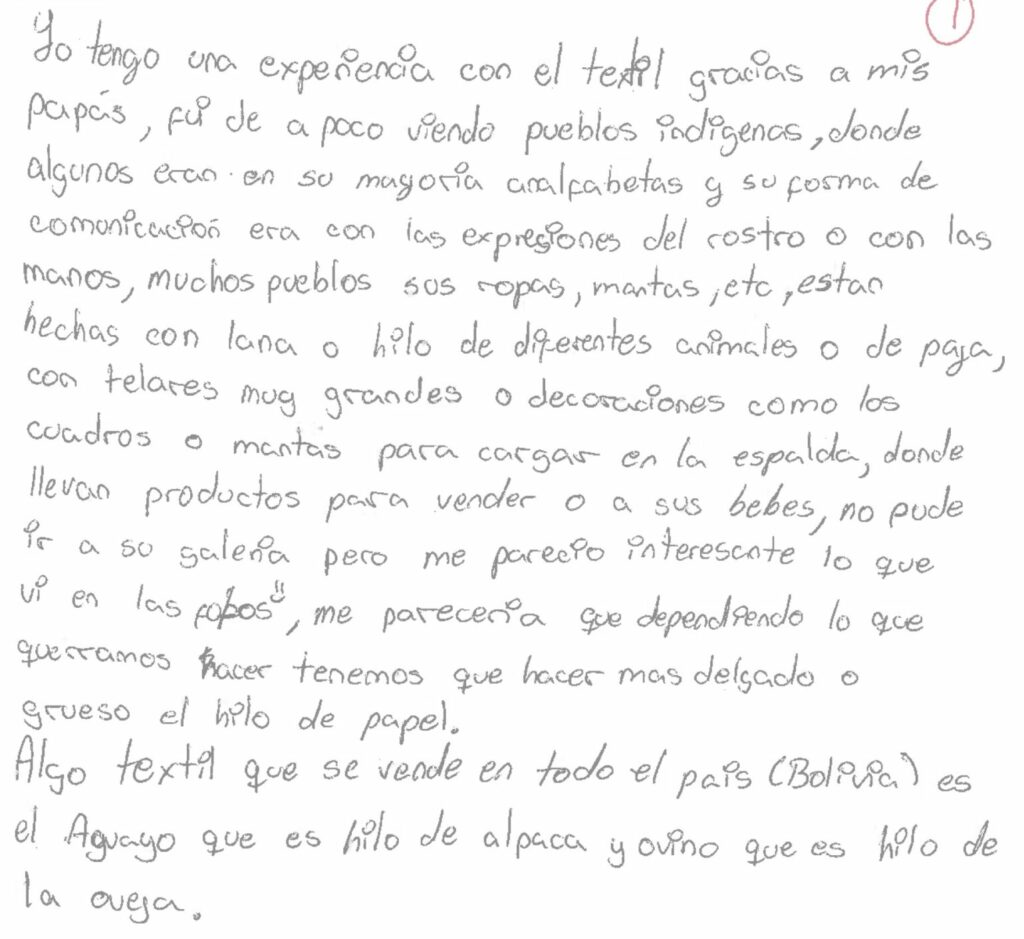 1
Yo tengo una experiencia con el textil gracias a mis
papás, fui de a poco viendo pueblos indigenas, donde
algunos eran en su mayoría analfabetas y su forma de
comunicación era con las expresiones del rostro o con las
manos, muchos pueblos sus ropas, mantas, etc, estan
hechas con lana o hilo de diferentes animales o de paja,
con telares muy grandes o decoraciones como los
cuadros o mantas para cargar en la espalda, donde
llevan productos para vender o a sus bebes, no pude
ir a su galería pero me parecio interesante lo que
vi en las fotos", me parecería que dependiendo lo que
querramos hacer tenemos que hacer mas delgado o
grueso el hilo de papel.
Algo textil que se vende en todo el país (Bolivia) es
el Aguayo que es hilo de alpaca y ovino que es hilo de
la oveja.